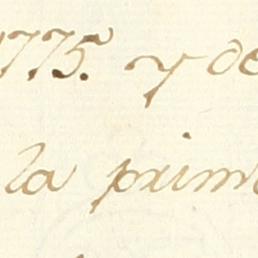 1775. y de
la prim